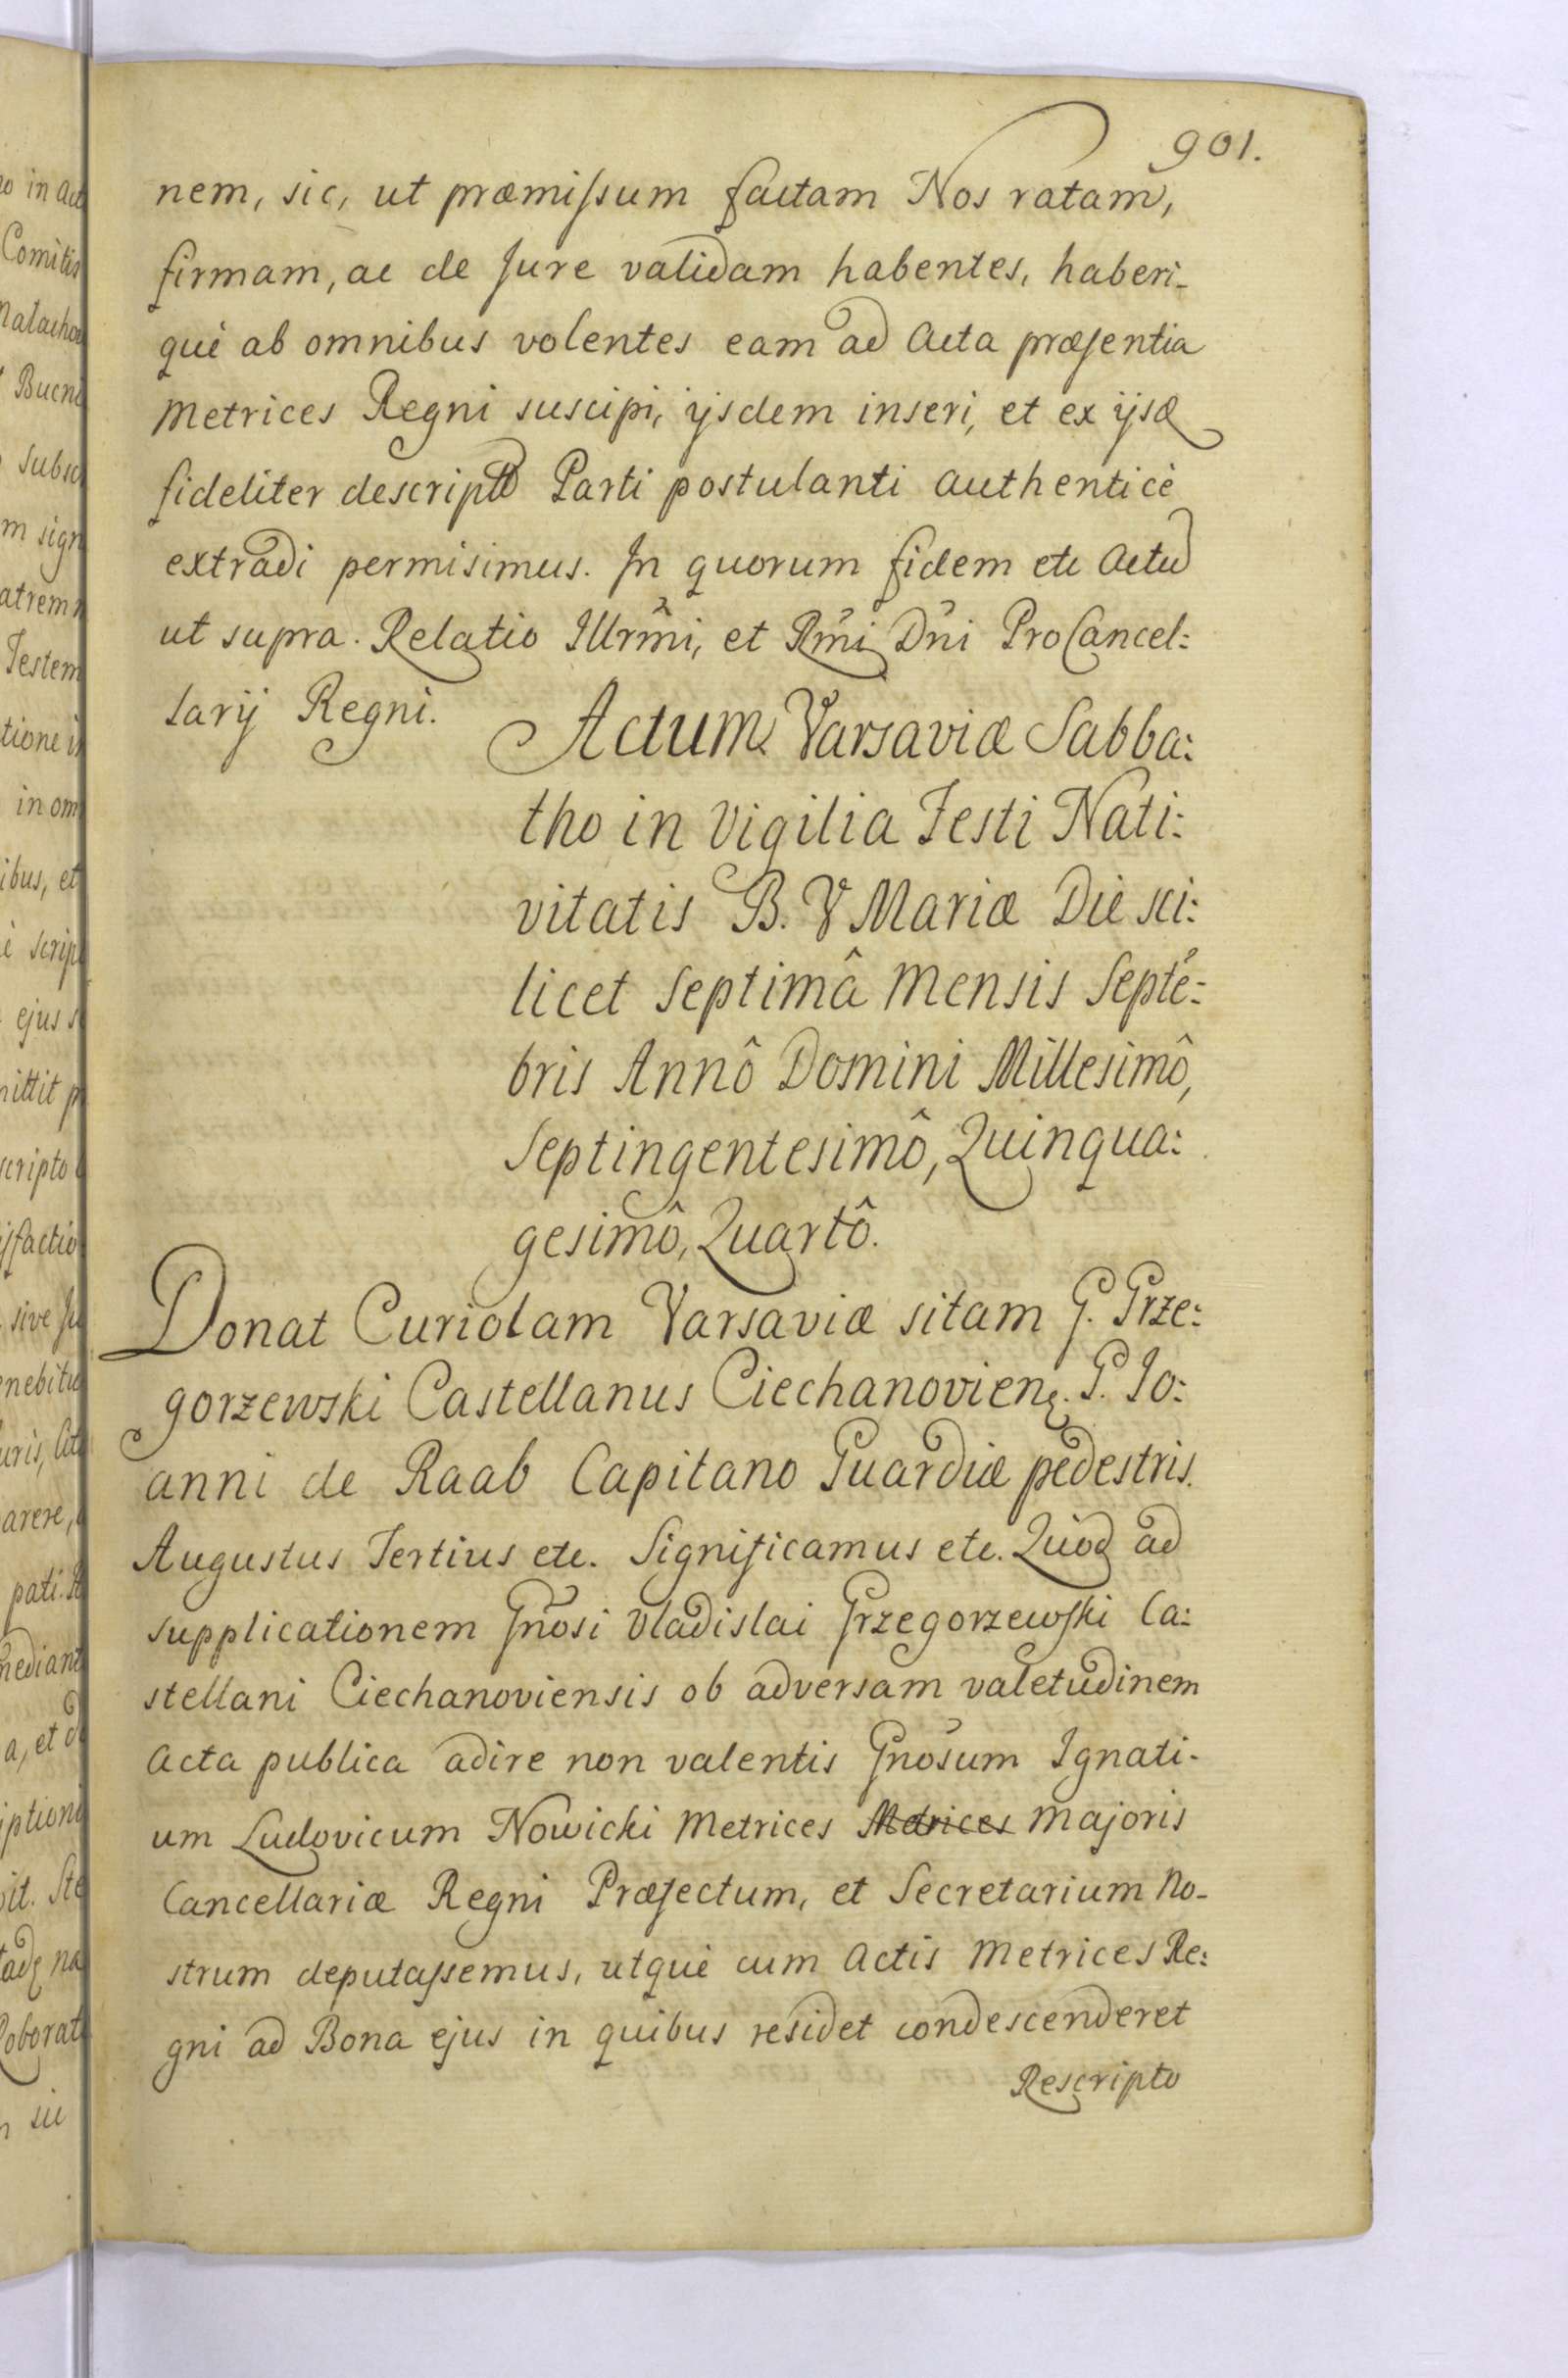 901.
nem, sic, ut præmissum factam Nos ratam,
firmam, ac de Jure validam habentes, haberi-
què ab omnibus volentes eam ad Acta præsentia
Metrices Regni suscipi, ijsdem inseri, et ex ijsd
fideliter descriptã Parti postulanti authenticè
extradi permisimus. In quorum fidem etc Actũ
ut supra. Relatio Illrm̃i, et Rm̃i Dñi ProCancel:
larij Regni.
Actum Varsaviæ Sabba:
tho in Vigilia Festi Nati:
vitatis B. V Mariæ Die sci:
licet Septimâ Mensis Septẽ:
bris Annô Domini Millesimô,
Septingentesimô, Quinqua:
gesimô, Quartô.
Donat Curiolam Varsaviæ sitam G. Grze:
gorzewski Castellanus Ciechanovien. G. Jo:
anni de Raab Capitano Guardiæ pedestris.
Augustus Tertius etc. Significamus etc. Quod ad
supplicationem Gñosi Vladislai Grzegorzewski Ca:
stellani Ciechanoviensis ob adversam valetudinem
Acta publica adire non valentis Gñosum Ignati-
um Ludovicum Nowicki Metrices Metrices Majoris
Cancellariæ Regni Præfectum, et Secretarium No-
strum deputassemus, utquè cum Actis Metrices Re:
gni ad Bona ejus in quibus residet condescenderet
Rescripto